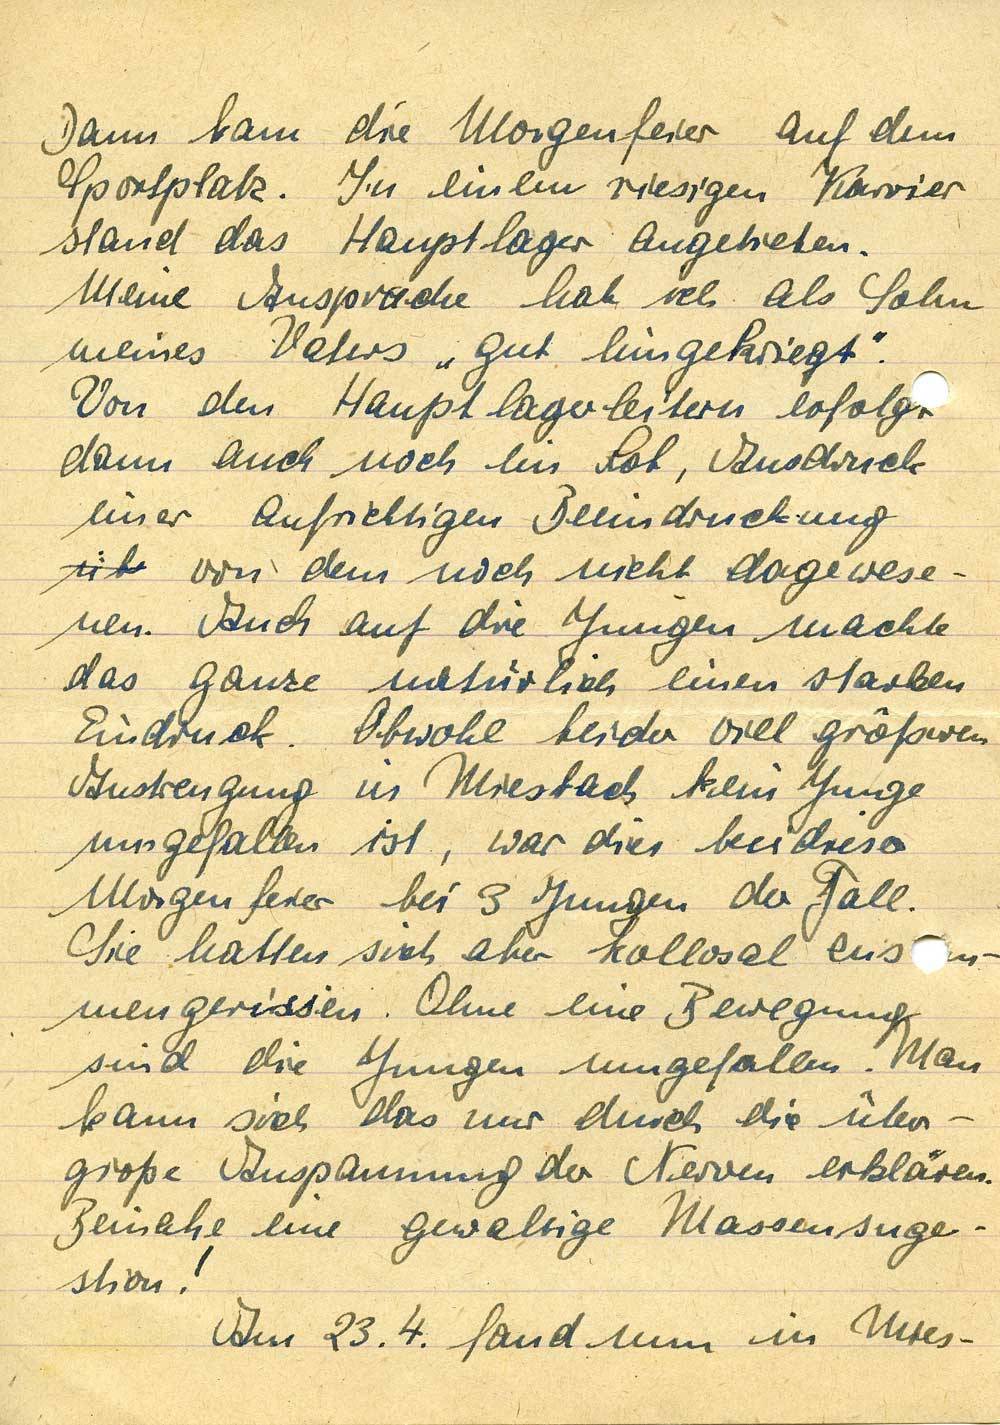 Dann kam die Morgenfeier auf dem
Sportplatz. In einem riesigen Karrier
stand das Hauptlager angetreten.
Meine Ansprache hab ich als Sohn
meines Vaters „gut hingekriegt“.
Von den Hauptlagerleitern erfolgt
dann auch noch ein Lob, Ausdruck
einer aufrichtigen Beeindruckung
von dem noch nicht dagewese-
nen. Auch auf die Jungen machte
das ganze natürlich einen starken
Eindruck. Obwohl bei der viel größeren
Anstrengung in Miesbach kein Junge
umgefallen ist, war dies bei dieser
Morgenfeier bei 3 Jungen der Fall.
Sie hatten sich aber kollosal zusam-
mengerissen. Ohne eine Bewegung
sind die Jungen umgefallen. Man
kann sich das nur durch die über-
große Anspannung der Nerven erklären.
Beinahe eine gewaltige Massensuge-
stion!
Am 23.4. fand nun in Mies-